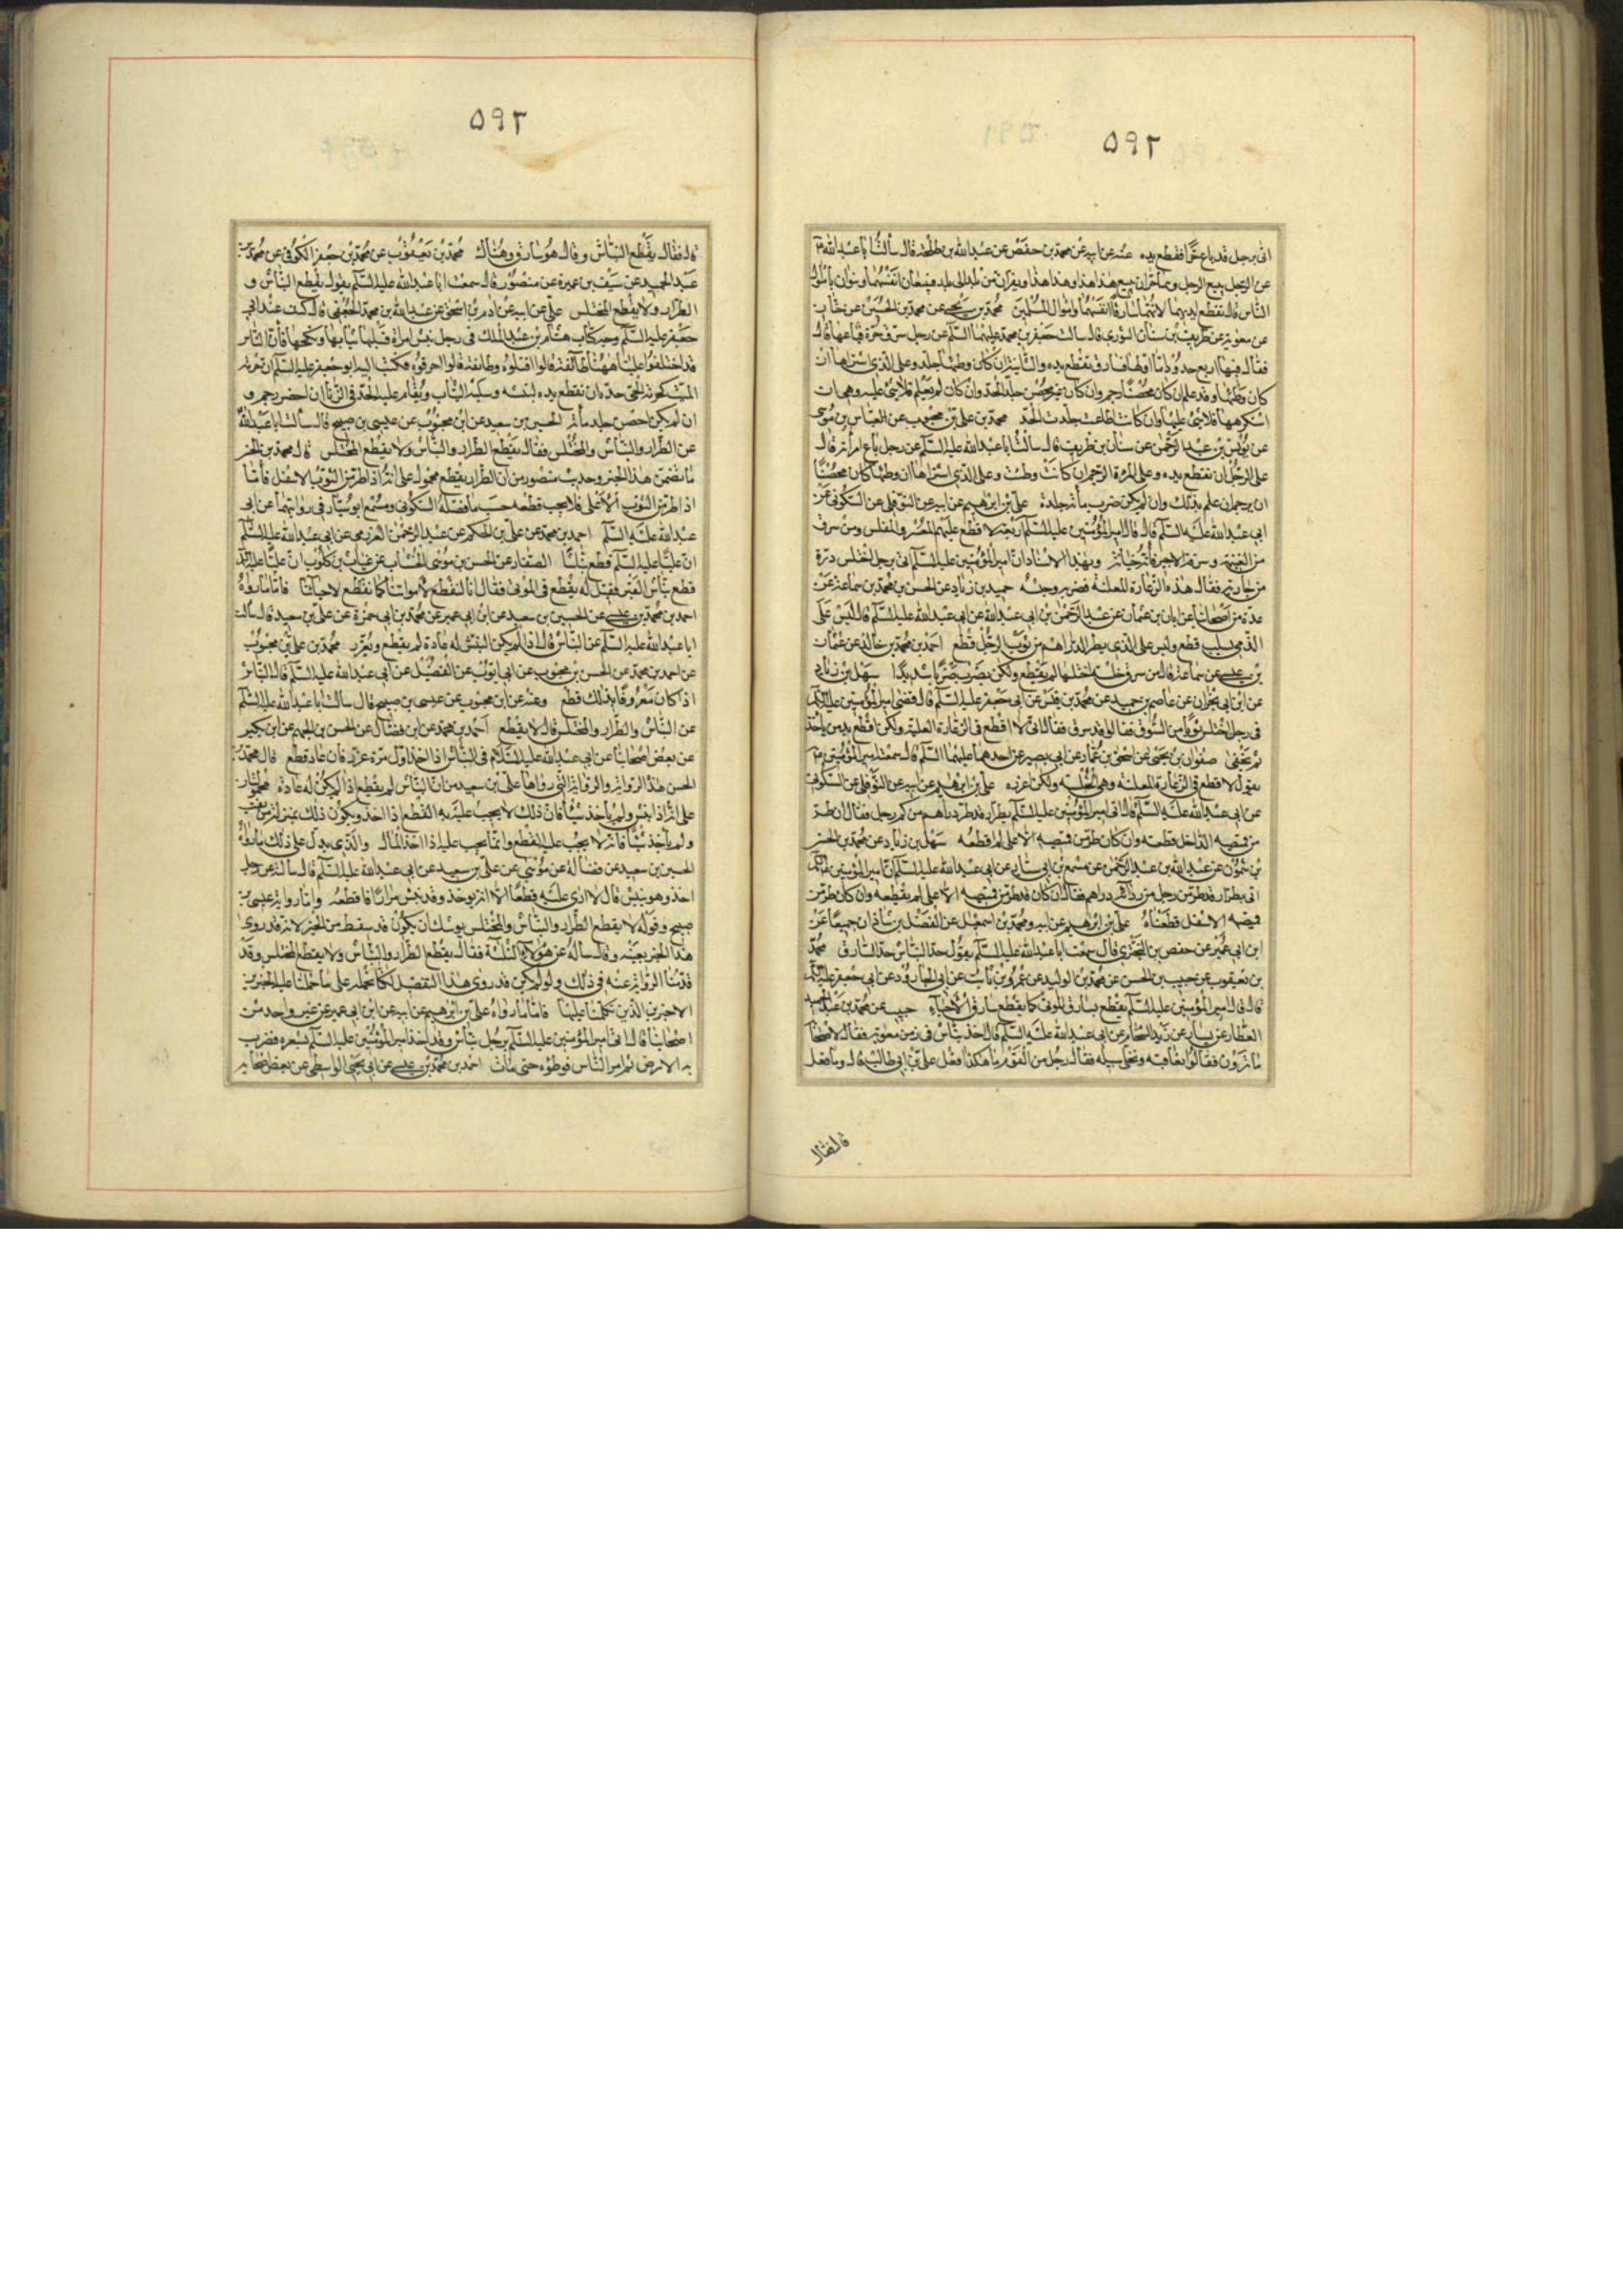 ۵۹۲
اتى برجل قد باع حرا فقطع يده عنه عن ابيه عن محمد بن حفص عن عبد الله بن طلحة قال سألت ابا عبد الله
عن الرجل يبيع الرجل وهما حران يبيع هذا هذا وهذا هذا ويفران من بلد الى بلد فيبيعان انفسهما ويفران باموال
الناس قال تقطع ايديهما لانهما سارقا انفسهما واموال المسلمين محمد بن يحيى عن محمد بن الحسين عن
عن معوية عن طريف بن سنان الثورى قال سألت جعفر بن محمد عليهما السلم عن رجل سرق حرة فباعها قال
فقال فيها اربع حدود اما اولها فسارق تقطع يده والثانية ان كان وطئها جلد وعلى الذى اشتراها ان
كان وطئها وقد علم ان كان محصنا رجم وان كان غير محصن جلد الحد وان كان لم يعلم فلا شئ عليه وهى ان
استكرهها فلا شئ عليها وان كانت اطاعت جلدت الحد محمد بن على بن محبوب عن العباس بن موسى
عن يونس بن عبد الرحمن عن سنان بن طريف قال سألت ابا عبد الله عليه السلم عن رجل باع امرأته قال
على الرجل ان تقطع يده وعلى المرءة الرجم ان كانت وطئت وعلى الذى اشتراها ان وطئها كان محصنا
ان يرجم ان علم بذلك وان لم يكن ضرب مأة جلدة على بن ابرهيم عن ابيه عن النوفلى عن السكونى عن
ابى عبد الله عليه السلم قال قال امير المؤمنين عليه السلم اربعة لا قطع عليهم المختلس والغلول ومن سرق
من الغنيمة وسرقة الاجير فانها خيانة وبهذا الاسناد ان امير المؤمنين عليه السلم اتى برجل اختلس درة
من جارية فقال هذه الدغارة المعلنة فضربه وحبسه حميد بن زياد عن الحسن بن محمد بن سماعة عن
عدة من اصحابنا عن ابان بن عثمان عن عبد الرحمن بن ابى عبد الله عن ابى عبد الله عليه السلم قال ليس على
الذى يسلب قطع وليس على الذى يطر الدراهم من ثوب الرجل قطع احمد بن محمد بن خالد عن عثمان
بن عيسى عن سماعة قال من سرق خلسة اختلسها لم يقطع ولكن يضرب ضربا شديدا سهل بن زياد
عن ابن ابى نجران عن عاصم بن حميد عن محمد بن قيس عن ابى جعفر عليه السلم قال قضى امير المؤمنين عليه السلم
فى رجل اختلس ثوبا من السوق فقالوا قد سرق فقال انى لا اقطع فى الدغارة المعلنة ولكن اقطع يد من يأخذ
ثم يخفى صفوان بن يحيى عن اسحق بن عمار عن ابى بصير عن احدهما عليهما السلم قال سمعته امير المؤمنين
يقول لا اقطع فى الدغارة المعلنة وهى الخلسة ولكن اعزره على بن ابرهيم عن ابيه عن النوفلى عن السكونى
عن ابى عبد الله عليه السلم قال اتى امير المؤمنين عليه السلم بطرار قد طر دراهم من كم رجل فقال ان طر
من قميصه الداخل قطعته وان كان طر من قميصه الاعلى لم اقطعه سهل بن زياد عن محمد بن الحسن
بن شمون عن عبد الله بن عبد الرحمن عن مسمع بن ابى سيار عن ابى عبد الله عليه السلم ان امير المؤمنين عليه السلم
اتى بطرار قد طر من رجل من دراهم فقال ان كان قد طر من قميصه الاعلى لم نقطعه وان كان طر من
قميصه الاسفل قطعناه على بن ابرهيم عن ابيه ومحمد بن اسمعيل عن الفضل بن شاذان جميعا عن
ابن ابى عمير عن حفص بن البخترى قال سمعت ابا عبد الله عليه السلم يقول حد النباش حد السارق محمد
بن يعقوب عن حبيب بن الحسن عن محمد بن الوليد عن عمرو بن ثابت عن ابى الجارود عن ابى جعفر عليه السلم
قال قال امير المؤمنين عليه السلم يقطع سارق الموتى كما يقطع سارق الاحياء حبيب عن محمد بن عبد الحميد
العطار عن سيار عن زيد الشحام عن ابى عبد الله عليه السلم قال اخذ نباش فى زمن معوية فقال لاصحابه
ما ترون فقالوا نعاقبه ونخلى سبيله فقال رجل من القوم ما هكذا فعل على بن ابى طالب قال وما فعل
قال فقال
۵۹۳
قال فقال يقطع النباش وقال هو سارق وهتاك محمد بن يعقوب عن محمد بن جعفر الكوفى عن محمد بن
عبد الحميد عن سيف بن عميرة عن منصور قال سمعت ابا عبد الله عليه السلم يقول يقطع النباش و
الطرار ولا يقطع المختلس على عن ابيه عن ادم بن اسحق عن عبد الله بن محمد الجعفى قال كنت عند ابى
جعفر عليه السلم وجاءه كتاب هشام بن عبد الملك فى رجل نبش امرأة فسلبها ثيابها ونكحها فان الناس
قد اختلفوا علينا ههنا طائفة قالوا اقتلوه وطائفة قالوا احرقوه فكتب اليه ابو جعفر عليه السلم ان حرمة
الميت كحرمة الحى حده ان تقطع يده لنبشه وسلبه الثياب ويقام عليه الحد فى الزنا ان احصن رجم و
ان لم يكن احصن جلد مأة الحسين بن سعيد عن ابن محبوب عن عيسى بن صبيح قال سألت ابا عبد الله
عن الطرار والنباش والمختلس فقال يقطع الطرار والنباش ولا يقطع المختلس قال محمد بن الحسن
ما تضمن هذا الخبر وحديث منصور من ان الطرار يقطع محمول على انه اذا طر من الثوب الاسفل فأما
اذا طر من الثوب الأعلى فلا يجب قطعه حسب ما فصله السكونى ومسمع ابو سيار فى روايتهما عن ابى
عبد الله عليه السلم احمد بن محمد عن على بن الحكم عن عبد الرحمن العرزمى عن ابى عبد الله عليه السلم
ان عليا عليه السلم قطع نباشا الصفار عن الحسن بن موسى الخشاب عن غياث بن كلوب ان عليا عليه السلم
قطع نباش القبر فقيل له يقطع فى الموتى فقال انا لنقطع لأمواتنا كما نقطع لاحيائنا فاما ما رواه
احمد بن محمد بن عيسى عن الحسين بن سعيد عن ابن ابى عمير عن محمد بن ابى حمزة عن على بن سعيد قال سألت
ابا عبد الله عليه السلم عن النباش قال اذا لم يكن النبش له عادة لم يقطع ويعزر محمد بن على بن محبوب
عن احمد بن محمد عن الحسن بن محبوب عن ابى ايوب عن الفضيل عن ابى عبد الله عليه السلم قال النباش
اذا كان معروفا بذلك قطع وعنه عن ابن محبوب عن عيسى بن صبيح قال سألت ابا عبد الله عليه السلم
عن النباش والطرار والمختلس قال لا يقطع احمد بن محمد عن ابن فضال عن الحسن بن الجهم عن ابن بكير
عن بعض اصحابنا عن ابى عبد الله عليه السلام فى النباش اذا اخذ اول مرة عزر فان عاد قطع قال محمد بن
الحسن هذا الرواية والرواية التى رواها على بن سعيد من ان النباش لم يقطع اذا لم يكن له عادة محمولتان
على انه اذا نبش ولم يأخذ شيئا فان ذلك لا يجب عليه به القطع اذا اخذ ويكون ذلك بمنزلة من نقب
ولم يأخذ شيئا فانه لا يجب عليه القطع وانما يجب عليه اذا اخذ المال والذى يدل على ذلك ما رواه
الحسين بن سعيد عن فضالة عن موسى عن على بن سعيد عن ابى عبد الله عليه السلم قال سألته عن رجل
اخذ وهو ينبش قال لا ارى عليه قطعا الا ان يؤخذ وقد نبش مرارا فاقطعه واما رواية عيسى بن
صبيح وقوله لا يقطع الطرار والنباش والمختلس يوشك ان يكون قد سقط من الخبر لانه قد روى
هذا الخبر بعينه وقال سألته عن هؤلاء الثلثة فقال يقطع الطرار والنباش ولا يقطع المختلس وقد
قدمنا الرواية عنه فى ذلك ولو لم يكن قد روى هذا التفصيل لكنا نحمله على ما حملنا عليه الخبرين
الاخيرين الذين تكلمنا عليهما فاما ما رواه على بن ابرهيم عن ابيه عن ابن ابى عمير عن غير واحد من
اصحابنا قال اتى امير المؤمنين عليه السلم برجل نباش فاخذ امير المؤمنين عليه السلم بشعره فضرب
به الارض ثم امر الناس فوطؤه حتى مات احمد بن محمد بن عيسى عن ابى يحيى الواسطى عن بعض اصحابه